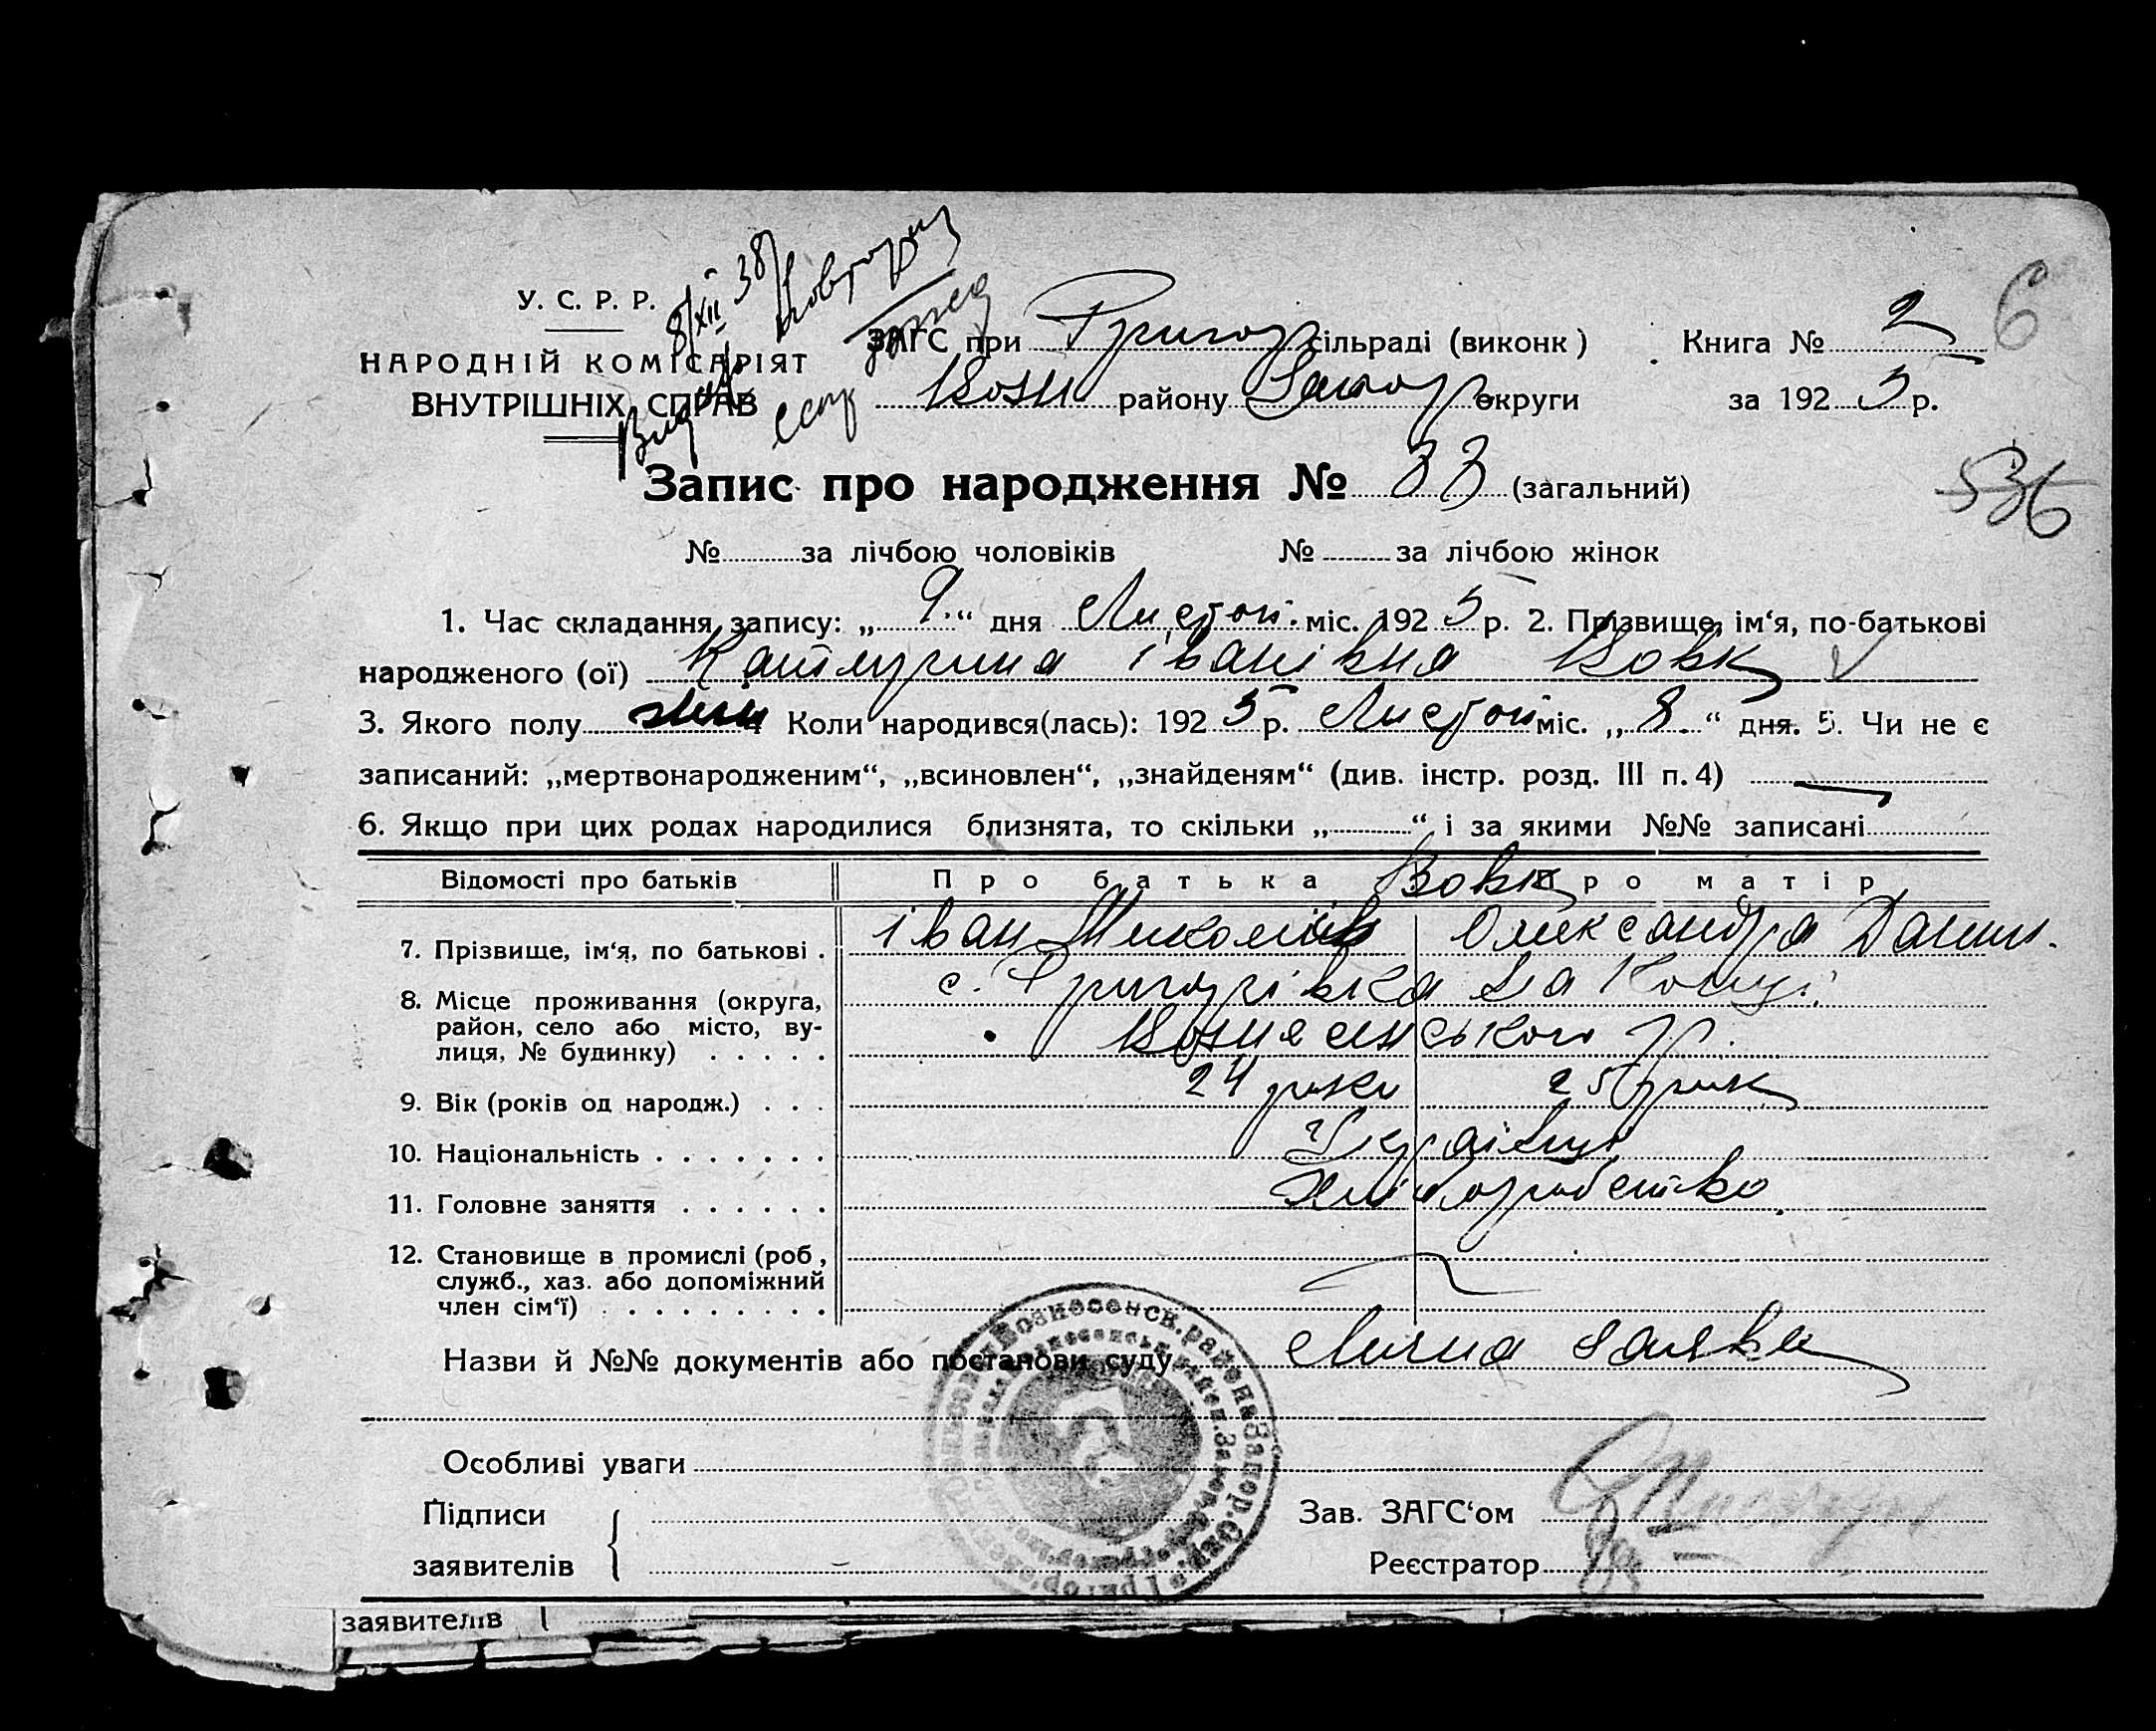 У. С. Р. Р.
НАРОДНІЙ КОМІСАРІЯТ
ВНУТРІШНІХ СПРАВ
8/XII 38
ЗАГС при Григор сільраді (виконк)
Возн району Запор округи
Книга № 2
за 192 5 р.
6
536
Запис про народження № 33 (загальний)
№ за лічбою чоловіків № за лічбою жінок
1. Час складання запису: „ 9 “ дня Листоп. міс. 192 5 р. 2. Прізвище, ім‘я, по-батькові
народженого (ої) Катерина Іванівна Вовк
3. Якого полу жін 4 Коли народився(лась): 192 5 р. Листоп міс. „ 8 “ дня. 5. Чи не є
записаний: „мертвонародженим“, „всиновлен“, „знайденям“ (див. інстр. розд. III п. 4)
6. Якщо при цих родах народилися близнята, то скільки „ “ і за якими №№ записані
Відомості про батьків Про батька Вовк Про матір
7. Прізвище, ім‘я, по батькові . Іван Миколаїв Олександра Данил.
8. Місце проживання (округа, с. Григорівка
район, село або місто, ву- Вознесенського р.
лиця, № будинку) . . . . .
9. Вік (років од народж.) . . . 24 роки 25 рок
10. Національність . . . . . . . Українці
11. Головне заняття . . . . . . Хліборобство
12. Становище в промислі (роб,
служб., хаз. або допоміжний
член сім‘ї) . . . . . . . . .
Назви й №№ документів або постанови суду Лична заява
Особливі уваги
Підписи
заявителів
Зав. ЗАГС‘ом
Реєстратор
заявителів